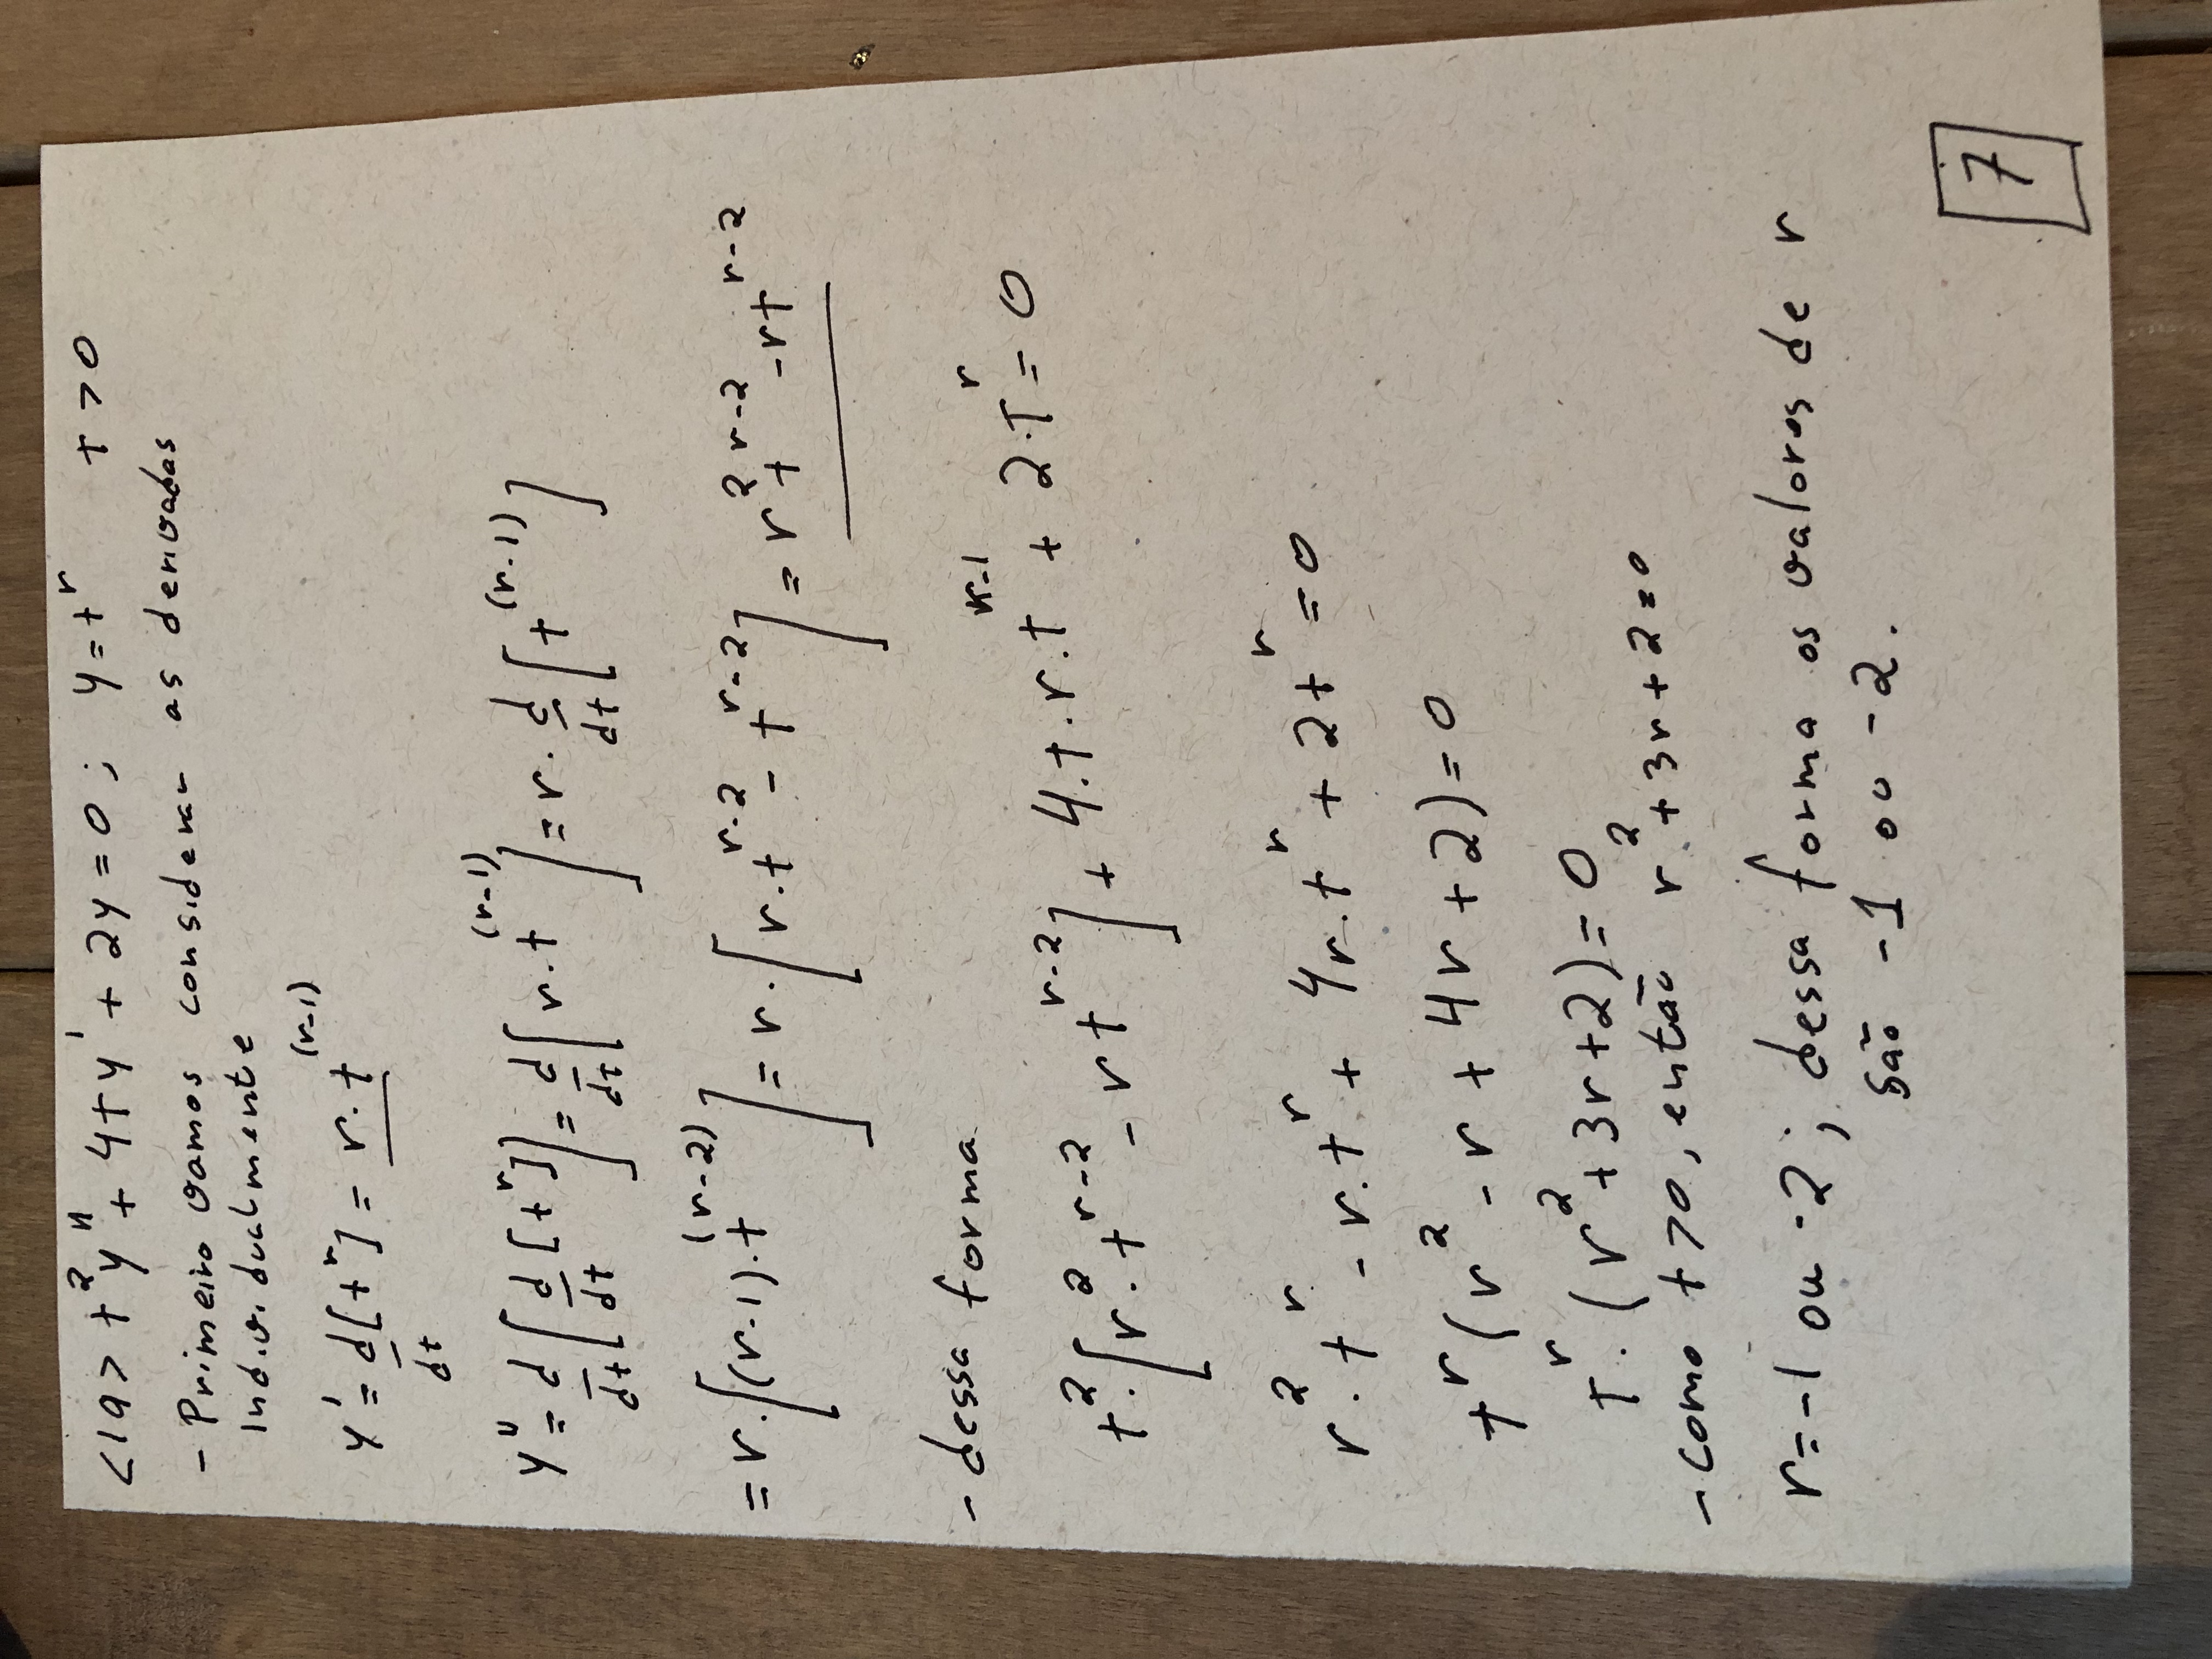 <19> t²y'' + 4ty' + 2y = 0; y = t^r t > 0
- Primeiro vamos considerar as derivadas
individualmente
y' = d/dt [t^r] = r · t^(r-1)
y'' = d/dt [d/dt [t^r]] = d/dt [r · t^(r-1)] = r · d/dt [t^(r-1)]
= r · [(r-1) · t^(r-2)] = r · [r · t^(r-2) - t^(r-2)] = r² t^(r-2) - rt^(r-2)
- dessa forma
t² · [r² · t^(r-2) - rt^(r-2)] + 4 · t · r · t^(r-1) + 2 · t^r = 0
r² · t^r - r · t^r + 4r · t^r + 2t^r = 0
t^r (r² - r + 4r + 2) = 0
t^r · (r² + 3r + 2) = 0
- como t > 0, então r² + 3r + 2 = 0
r = -1 ou -2; dessa forma os valores de r
são -1 ou -2.
7